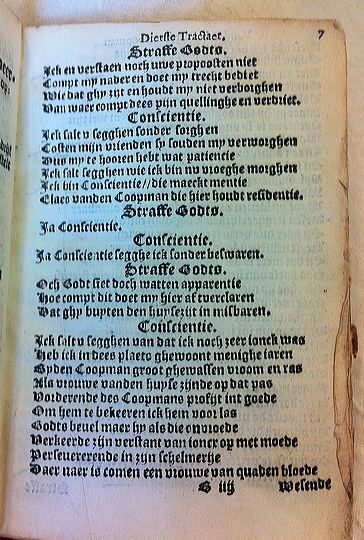 Dierste Tractaet. 7
Straffe Godts.
Ick en verstaen noch uwe propoosten niet
Compt my nader en doet my trecht bediet
Wie dat ghy zijt en houdt my niet verborghen
Van waer compt dees pijn quellinghe en verdriet.
Conscientie.
Ick salt v segghen sonder sorghen
Costen mijn vrienden sy souden my verworghen
Dus my te hooren hebt wat patientie
Ick salt segghen wie ick bin nv vroeghe morghen
Ick bin Conscientie//die maeckt mentie
Claes vanden Coopman die hier houdt residentie.
Straffe Godts.
Ja Conscientie.
Conscientie.
Ja Conscientie segghe ick sonder beswaren.
Straffe Godts.
Och Godt siet doch watten apparentie
Hoe compt dit doet my hier af tverclaren
Dat ghy buyten den huyse zijt in misbaren.
Conscientie.
Ick salt v segghen van dat ick noch zeer ionck was
Heb ick in dees plaets ghewoont menighe iaren
By den Coopman groot ghewassen vroom en ras
Als vrouwe vanden huyse zijnde op dat pas
Voorderende des Coopmans profijt int goede
Om hem te bekeeren ick hem voor las
Godts beuel maer hy als die onvroede
Verkeerde zijn verstant van ioncx op met moede
Perseuererende in zijn schelmerije
Daer naer is comen een vrouwe van quaden bloede
G iij Wesende